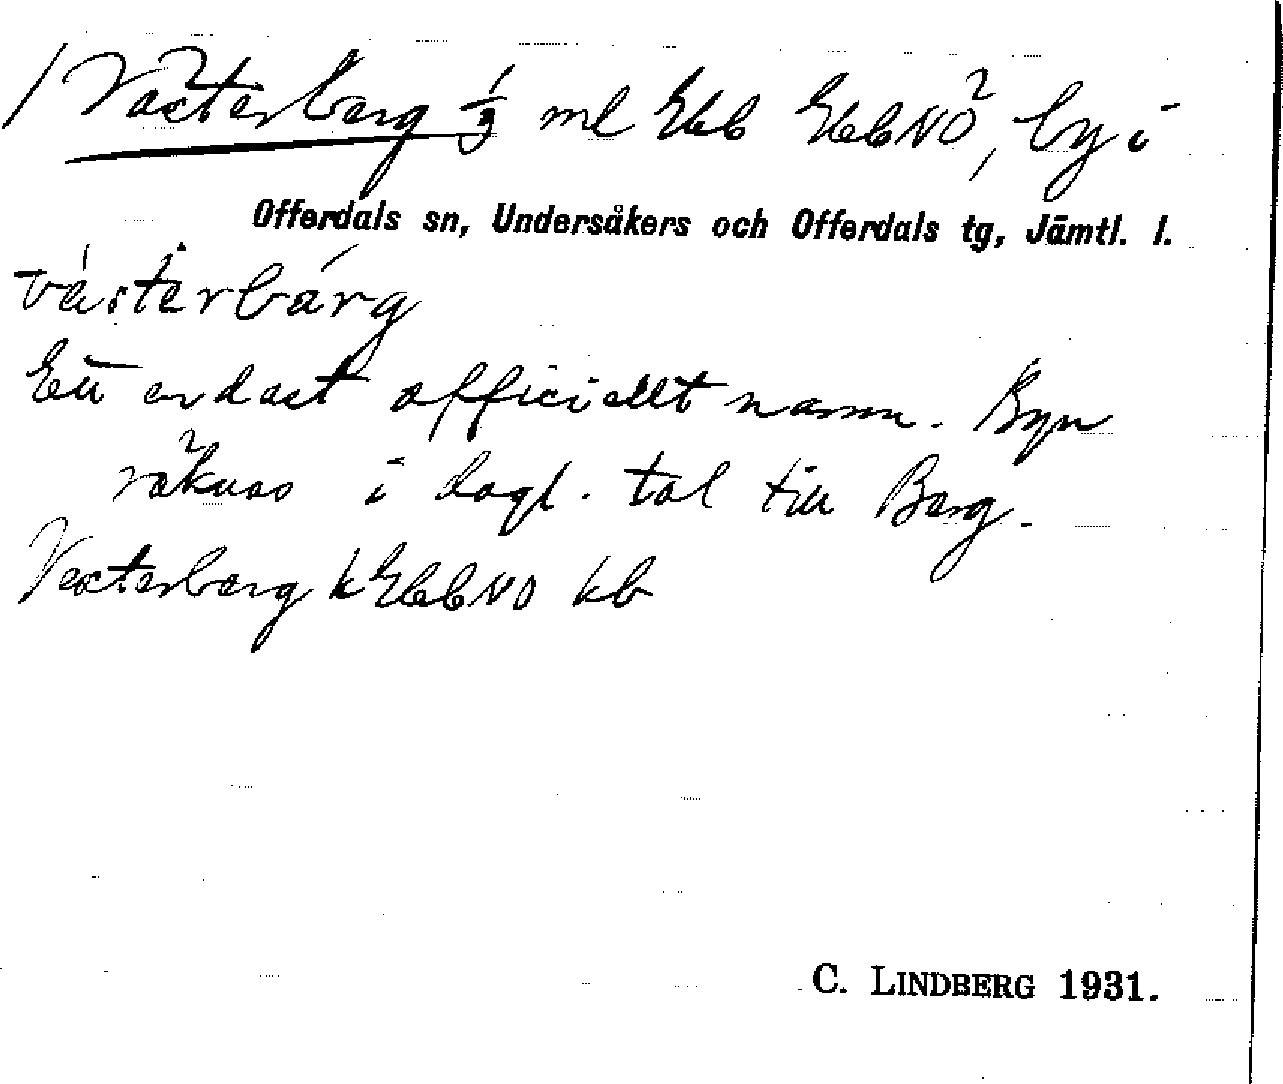 / Västerberg 1/3 ml Ebb EbbNÖ, by i
Offerdals sn, Undersåkers och Offerdals tg, Jämtl. l.
västerbärg
Ett endast officiellt namn. Byn
räknas i dagl. tal till Berg.
Vesterberg k EbbNO kb
C. LINDBERG 1931.